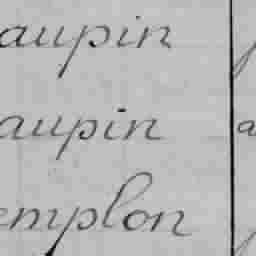 aupin
aupin a
emplon